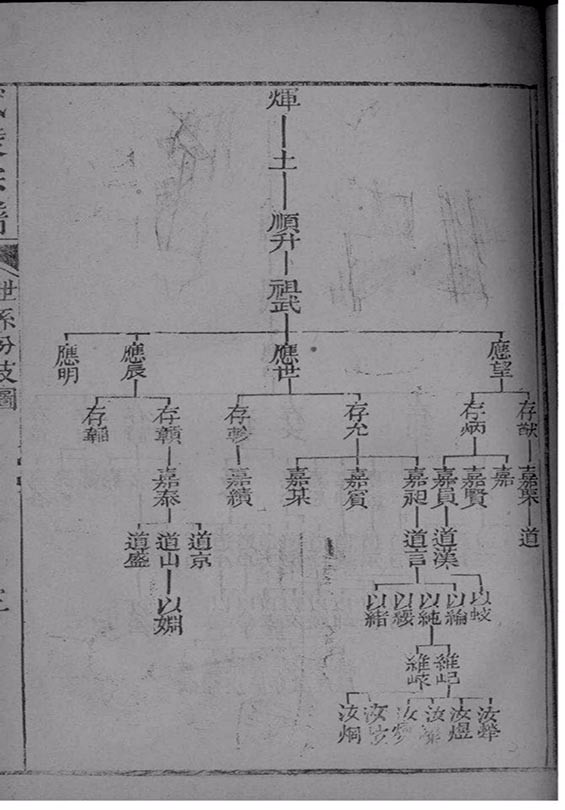 煇
土
順升
祖武
應望 應世 應辰 應明
存猷 存炳 存允 存軫 存韻 存韜
嘉葉 嘉 嘉賢 嘉員 嘉昶 嘉賓 嘉某 嘉績 嘉泰
道 道漢 道言 道京 道山 道盛
以蛟 以綸 以純 以緩 以緒 以嫻
維屺 維
汝 汝煜 汝 汝 汝 汝炯
世系分枝圖